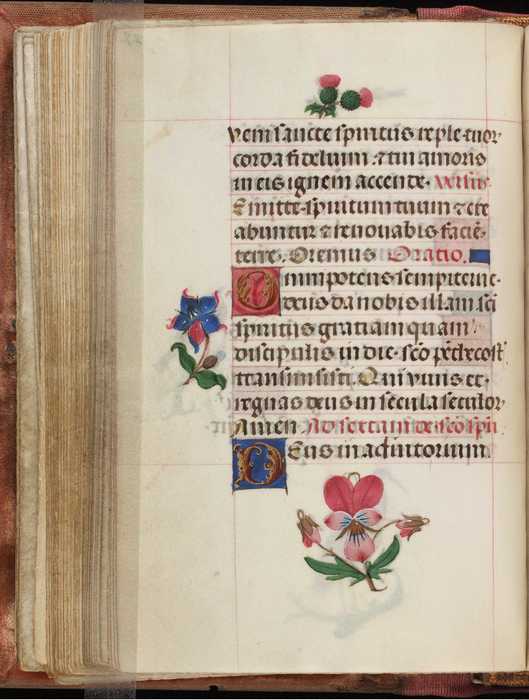 veni sancte spiritus reple tuor
corda fidelium. ⁊ tui amoris
in eis ignem accende. Versus
Emitte spiritum tuum ⁊ cre
abuntur ⁊ renouabis faciē
terre. Oremus Oratio.
Omnipotens sempiterne
deus da nobis illam sci
spiritus gratiam quam
discipulis in die sco penthecost
transmisisti. Qui viuis et
regnas deus in secula seculor
Amen. Ad sextam de sco spū
Deus in adiutorium